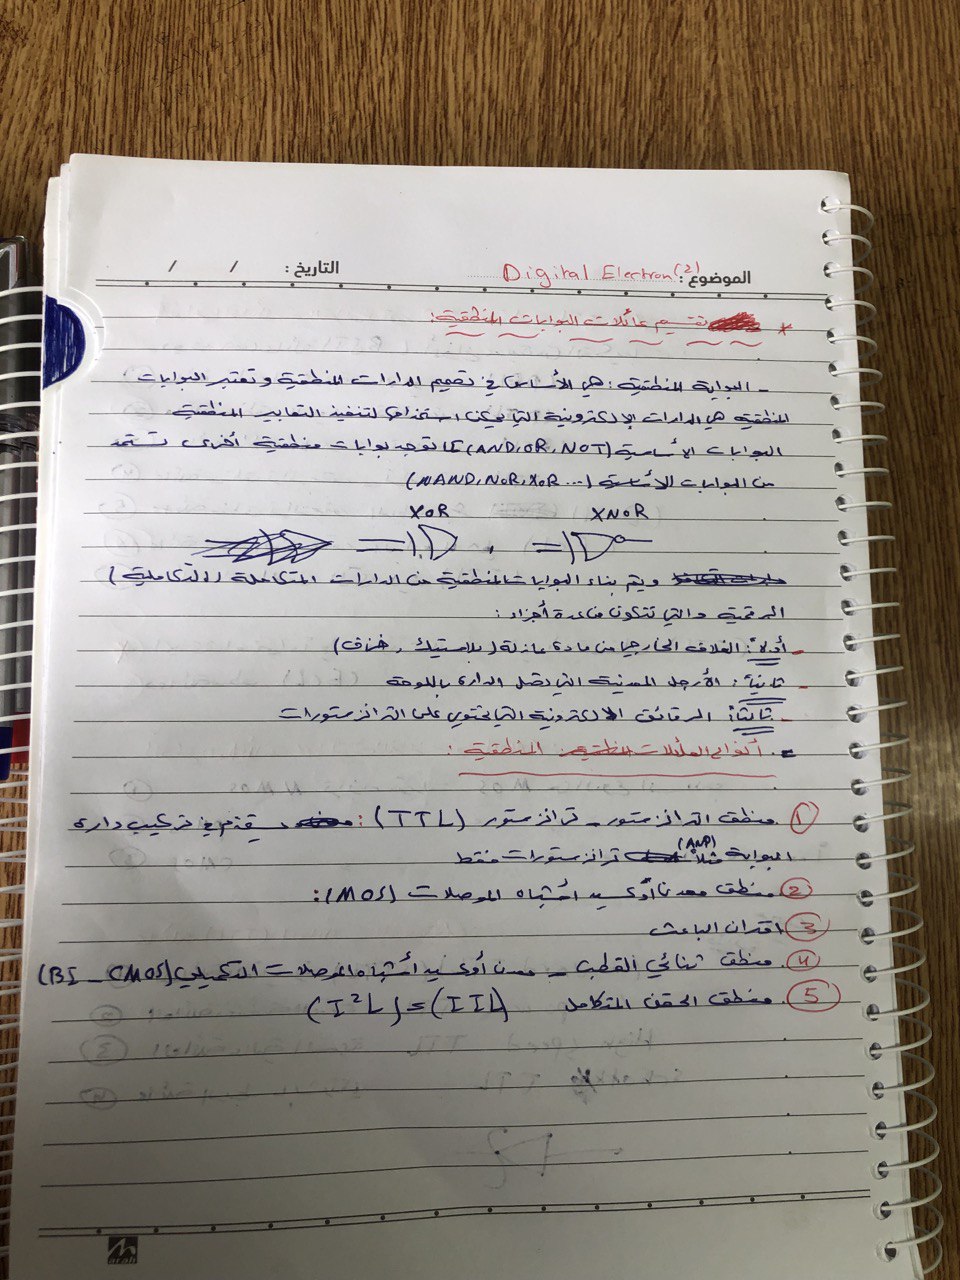 الموضوع : Digital Electron (2) التاريخ : / /
* تقسيم عائلات البوابات المنطقية :
- البوابة المنطقية : هي الأساس في تصميم الدارات المنطقية وتعتبر البوابات
المنطقية هي الدارات الإلكترونية التي يمكن استخدامها لتنفيذ التعابير المنطقية
البوابات الأساسية (AND, OR, NOT) كما توجد بوابات منطقية أخرى تستمد
من البوابات الأساسية (NAND, NOR, XOR ...)
XOR XNOR
ويتم بناء البوابات المنطقية من الدارات المتكاملة (التكاملية)
الرقمية والتي تتكون من عدة أجزاء :
- أولاً : الغلاف الخارجي من مادة عازلة (بلاستيك ، خزف)
- ثانياً : الأرجل المعدنية التي تصل الدارة باللوحة
- ثالثاً : الرقائق الالكترونية التي تحتوي على الترانزستورات
أنواع العائلات المنطقية :
① منطق الترانزستور - ترانزستور (TTL) : يقدم في تركيب دارة
البوابة مثلاً (AND) ترانزستورات فقط
② منطق معدن أوكسيد أشباه الموصلات (MOS) :
③ اقتران الباعث
④ منطق ثنائي القطب - معدن أوكسيد أشباه الموصلات التكميلي (BI_CMOS)
⑤ منطق الحقن المتكامل (IIL) = (I²L)